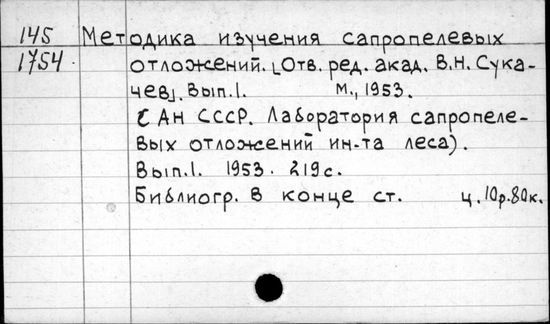 145 Методика изучения сапропелевых
1754. отложений. [Отв. ред. акад. В.Н. Сука-
чев]. Вып.1. М., 1953.
(АН СССР. Лаборатория сапропеле-
вых отложений ин-та леса).
Вып.1. 1953. 219с.
Библиогр. в конце ст. ц. 10р.80к.